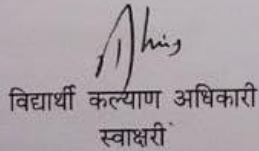 विद्यार्थी कल्याण अधिकारी
स्वाक्षरी